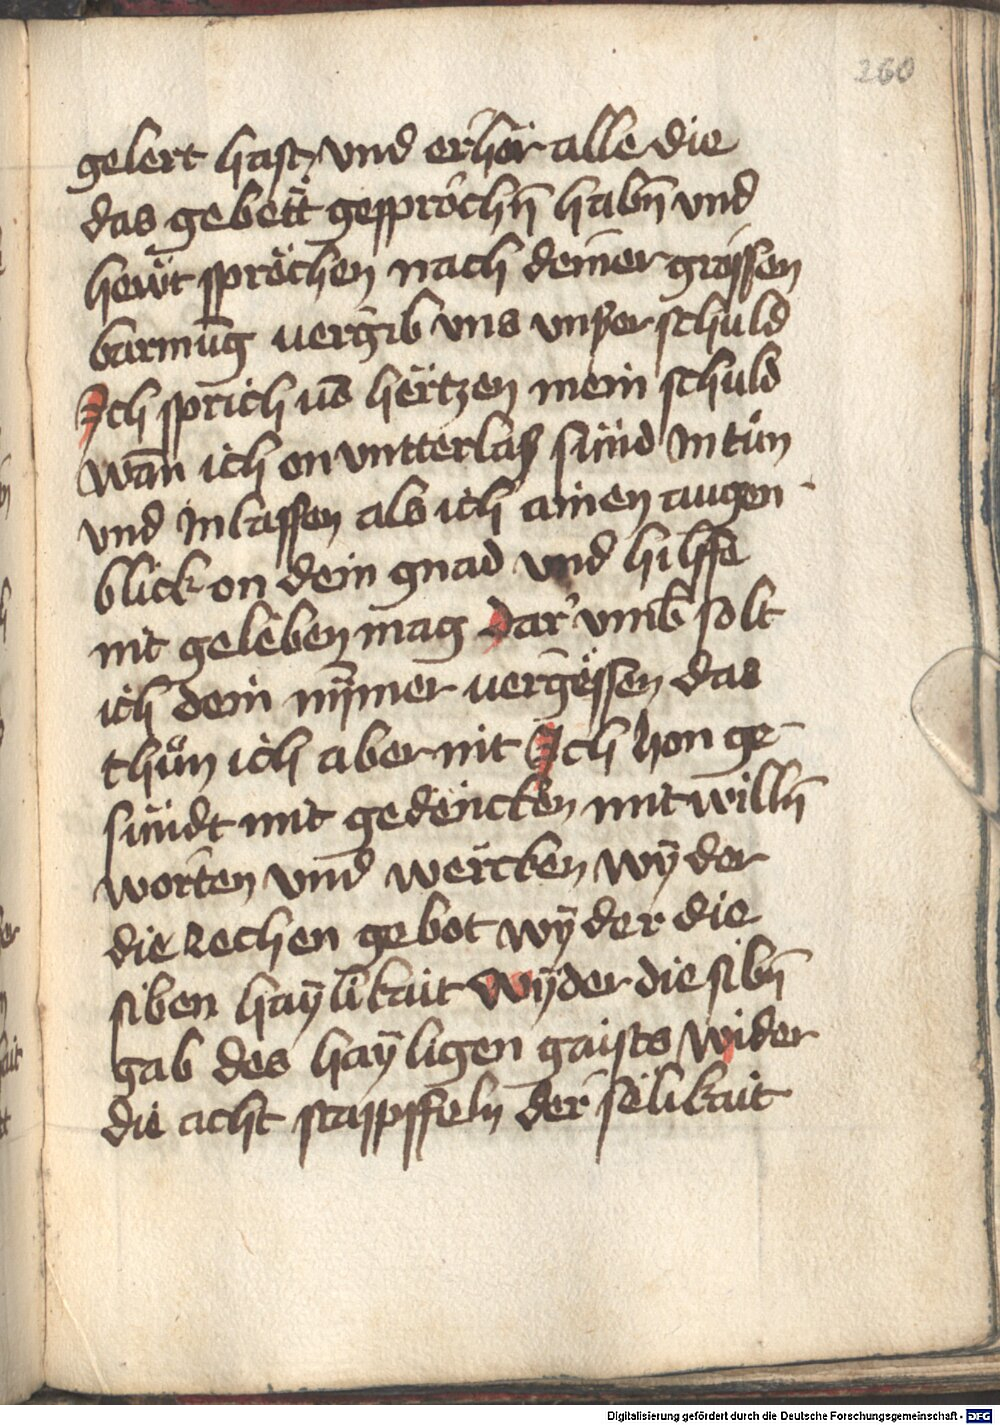 260
gelert hast vnd erhör alle die
das gebett gesprochn̄ habn̄ vnd
hewt sprechen nach deiner grossen
barmūg vergib vns vnßer schuld
Ich sprich vs̄ hertzen mein schuld
wān ich on vntterlaß sünd In tün
vnd In lassen als ich ainen augen
blick on dein gnad vnd hilffe
nit geleben mag Dar vmb solt
ich dein nymer vergessen das
thün ich aber nit Ich hon ge-
sündt mit gedencken mit willn̄
worten vnd wercken wÿder
die zechen gebot wÿder die
siben haÿlikait Wÿder die sibn̄
gab des haÿligen gaists wider
die acht stapffeln der selikait
Digitalisierung gefördert durch die Deutsche Forschungsgemeinschaft - DFG